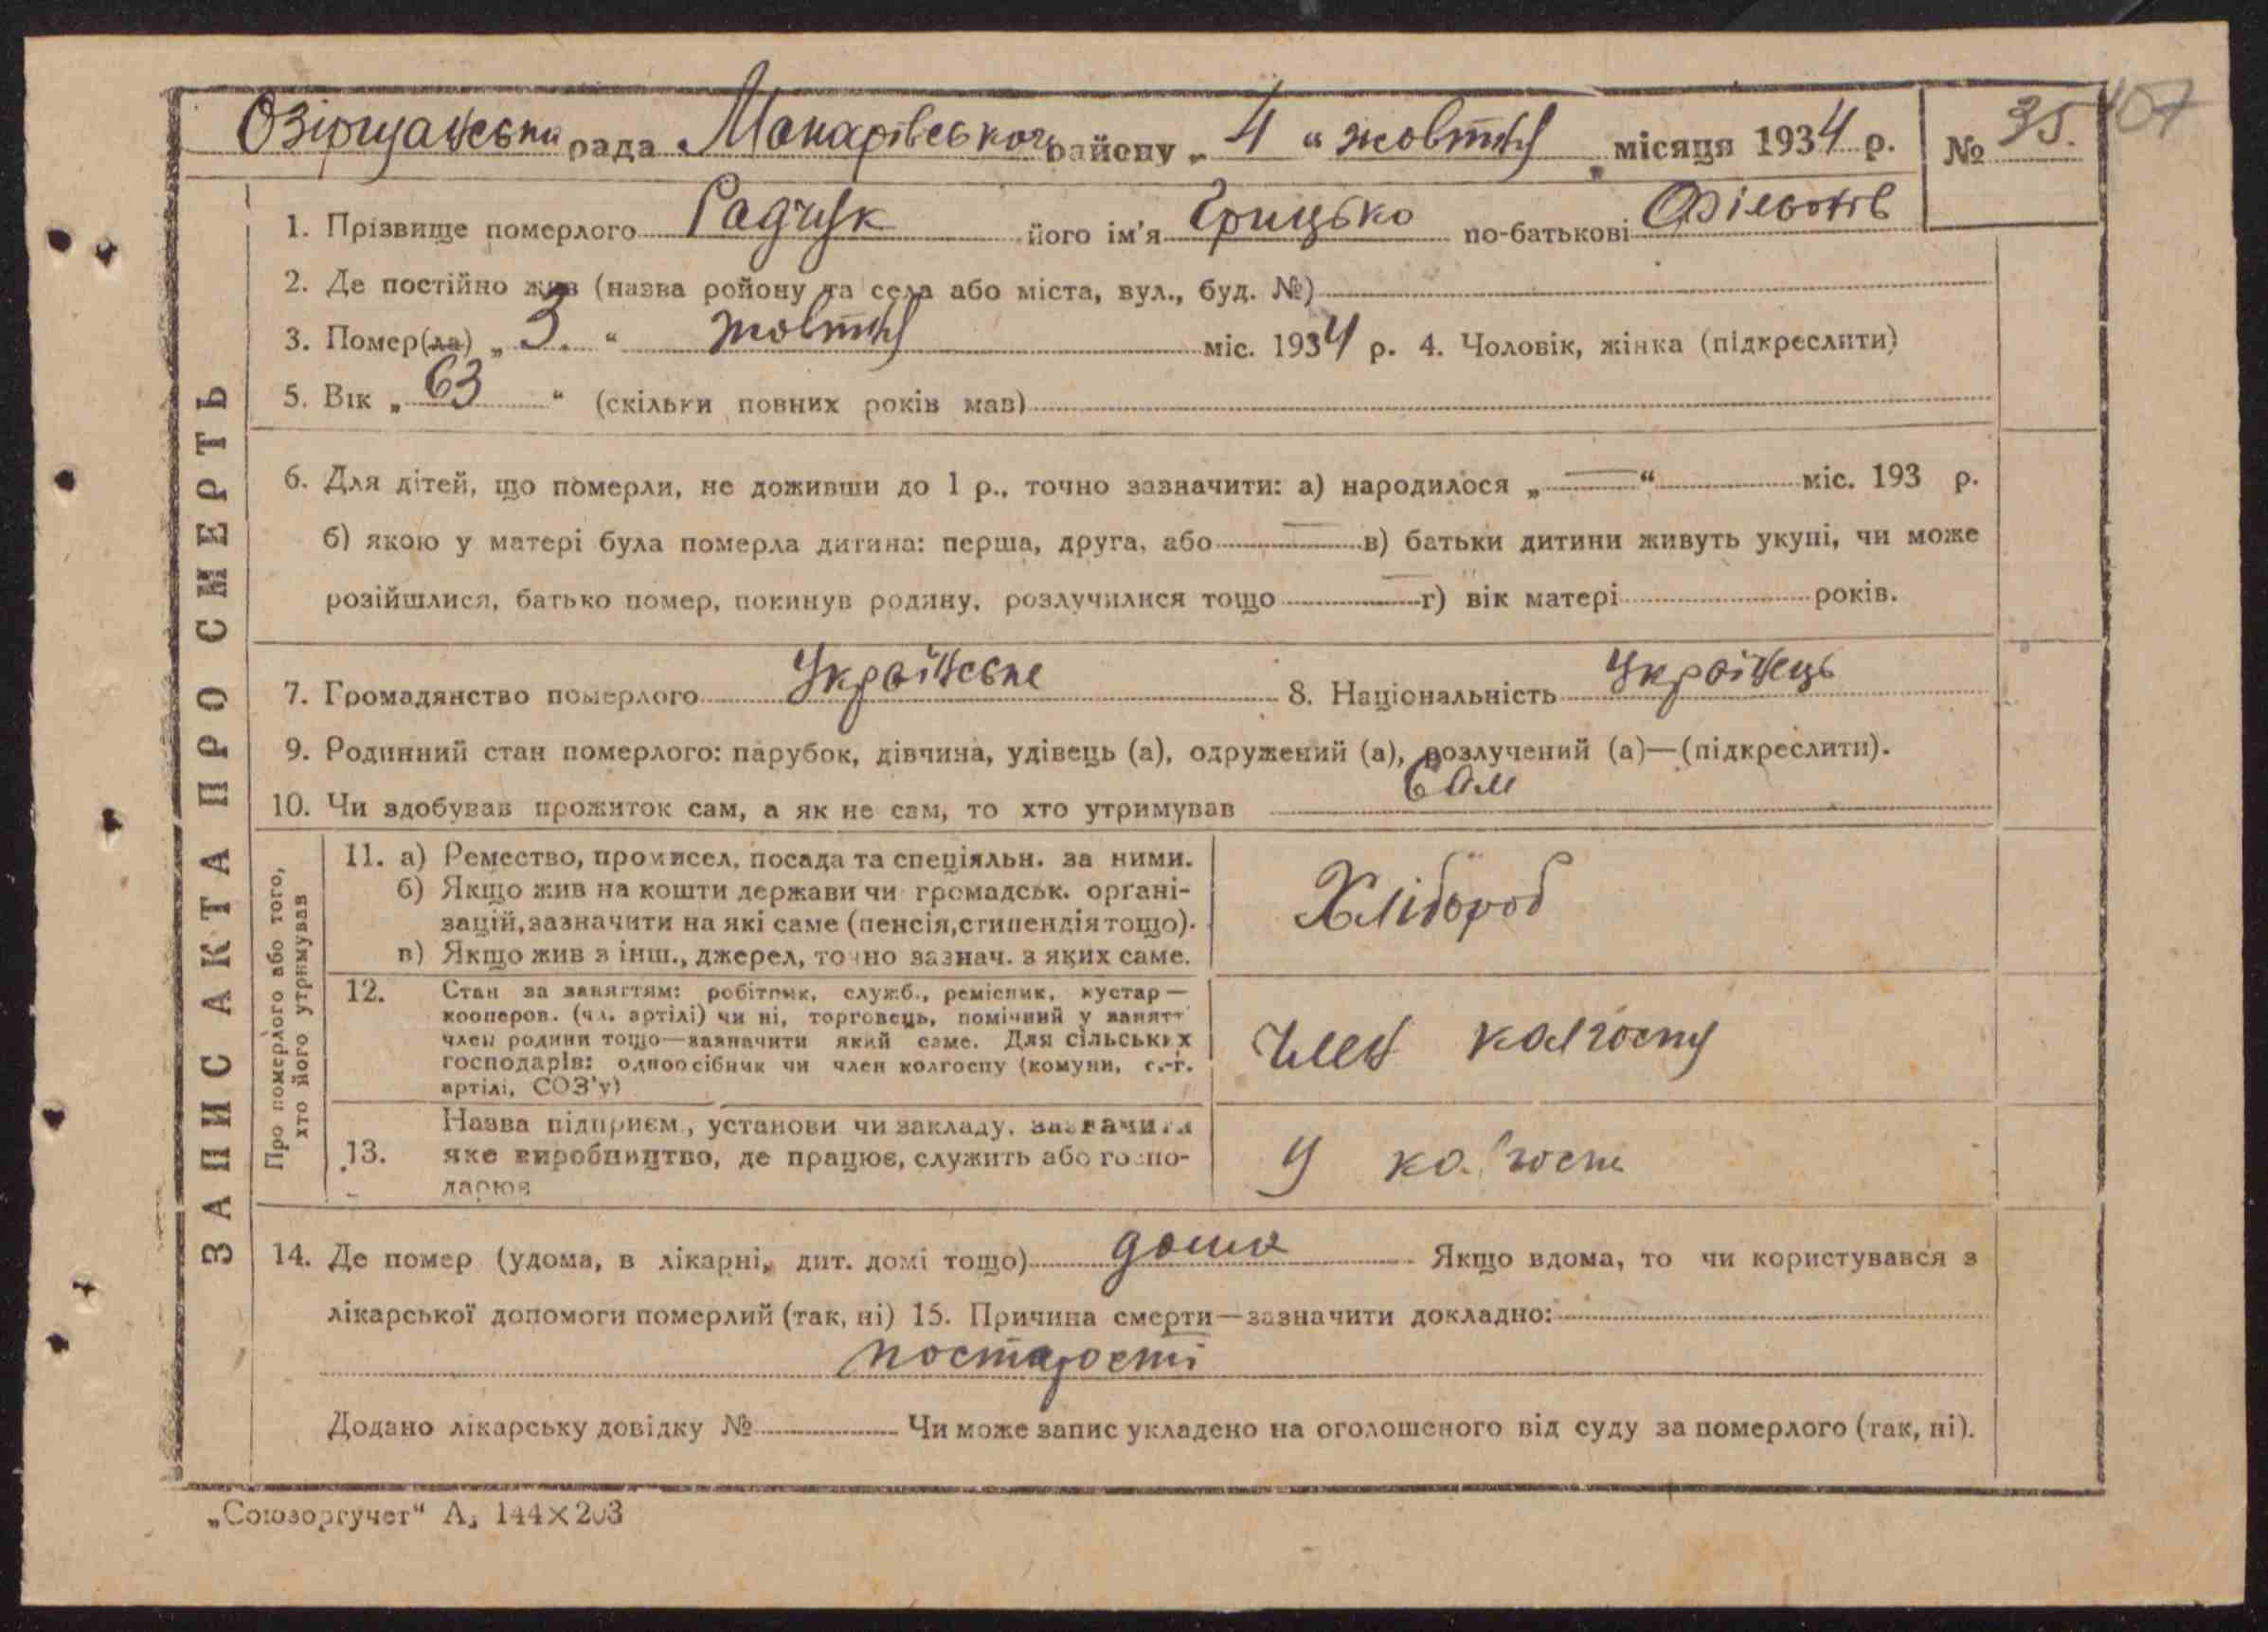 Озірщанська рада Макарівського району „ 4 “ жовтня місяця 1934 р. № 35. 107
1. Прізвище померлого Радчук його ім'я Грицько по-батькові
2. Де постійно жив (назва ройону та села або міста, вул., буд. №)
3. Помер(ла) „ 3. “ жовтня міс. 1934 р. 4. Чоловік, жінка (підкреслити)
5. Вік „ 63 “ (скільки повних років мав)
6. Для дітей, що померли, не доживши до 1 р., точно зазначити: а) народилося „ — “ міс. 193 р.
б) якою у матері була померла дитина: перша, друга, або — в) батьки дитини живуть укупі, чи може
розійшлися, батько помер, покинув родину, розлучилися тощо — г) вік матері років.
7. Громадянство померлого Українське 8. Національність Українець
9. Родинний стан померлого: парубок, дівчина, удівець (а), одружений (а), розлучений (а)—(підкреслити).
10. Чи здобував прожиток сам, а як не сам, то хто утримував Сам
ЗАПИС АКТА ПРО СМЕРТЬ
Про померлого або того,
хто його утримував
11. а) Ремество, промисел, посада та спеціяльн. за ними.
б) Якщо жив на кошти держави чи громадськ. органі-
зацій, зазначити на які саме (пенсія, стипендія тощо).
в) Якщо жив з інш., джерел, точно зазнач. з яких саме.
Хлібороб
12. Стан за заняттям: робітник, служб., ремісник, кустар —
кооперов. (чл. артілі) чи ні, торговець, помічний у занятт
член родини тощо—зазначити який саме. Для сільських
господарів: одноосібник чи член колгоспу (комуни, с.-г.
артілі, СОЗ'у)
член колгоспу
13. Назва підприєм., установи чи закладу, зазначити
яке виробництво, де працює, служить або госпо-
дарює
У колгоспі
14. Де помер (удома, в лікарні, дит. домі тощо) дома Якщо вдома, то чи користувався з
лікарської допомоги померлий (так, ні) 15. Причина смерти—зазначити докладно:
постарості
Додано лікарську довідку № Чи може запис укладено на оголошеного від суду за померлого (так, ні).
„Союзоргучет“ А5 144×203